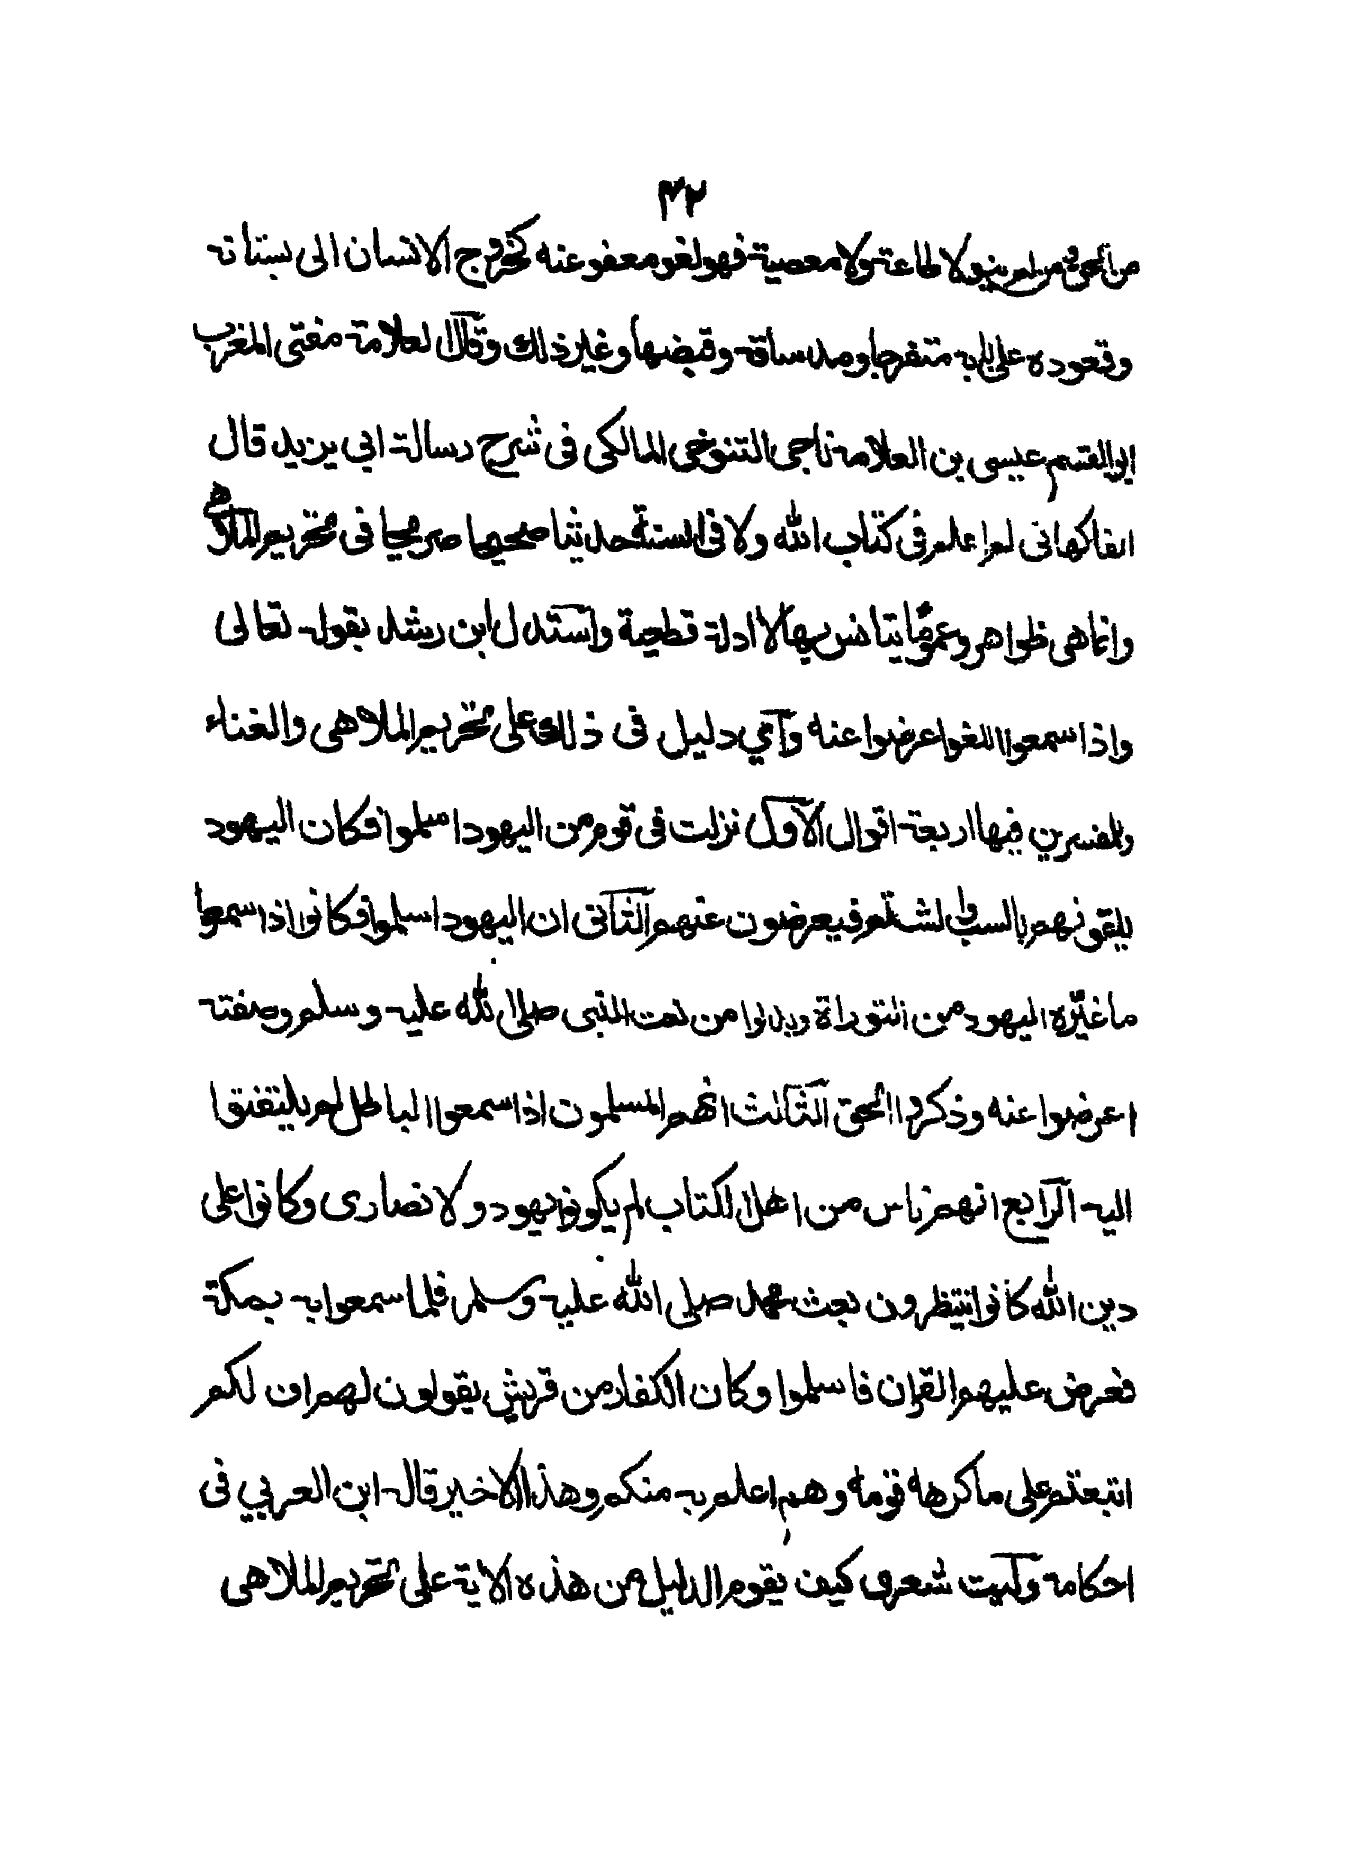 ٤٢
من الحق ومن لم ينو لا طاعة ولا معصية فهو لغو معفو عنه كخروج الانسان الى بستانه
وقعوده على بابه متفرجا ومد ساقه وقبضها وغير ذلك وقال العلامة مفتى المغرب
ابو القسم عيسى بن العلامة ناجى التنوخى المالكى فى شرح رسالة ابي يزيد قال
الفاكهانى لم اعلم فى كتاب الله ولا فى السنة حديثا صحيحا صريحا فى تحريم الملاهى
وانما هى ظواهر وعموما يتانس بها لا ادلة قطعية واستدل ابن رشد بقوله تعالى
واذا سمعوا اللغوا عرضوا عنه وآي دليل فى ذلك على تحريم الملاهى والغناء
وللمفسرين فيها اربعة اقوال الاول نزلت فى قوم من اليهود اسلموا فكان اليهود
يلقونهم بالسب والشتم فيعرضون عنهم الثانى ان اليهود اسلموا فكانوا اذا سمعوا
ما غيّره اليهود من التوراة وبدلوا من نعت النبى صلى الله عليه وسلم وصفته
اعرضوا عنه وذكروا الحق الثالث انهم المسلمون اذا سمعوا الباطل لم يلتفتوا
اليه الرابع انهم ناس من اهل الكتاب لم يكونوا يهود ولا نصارى وكانوا على
دين الله كانوا ينتظرون بعث محمد صلى الله عليه وسلم فلما سمعوا به بمكة
فعرض عليهم القران فاسلموا وكان الكفار من قريش يقولون لهم اف لكم
اتبعتم على ما كرهه قومه وهم اعلم به منكم وهذا الاخير قال ابن العربي فى
احكامه وليت شعرى كيف يقوم الدليل من هذه الاية على تحريم الملاهى